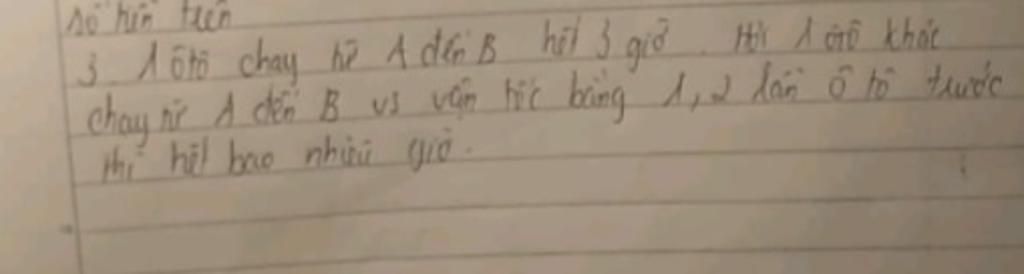 số hữu tren
3 1 ôtô chạy từ A đến B hết 3 giờ. Hỏi 1 ôtô khác
chạy từ A đến B vs vận tốc bằng 1,2 lần ô tô trước
thì hết bao nhiêu giờ.